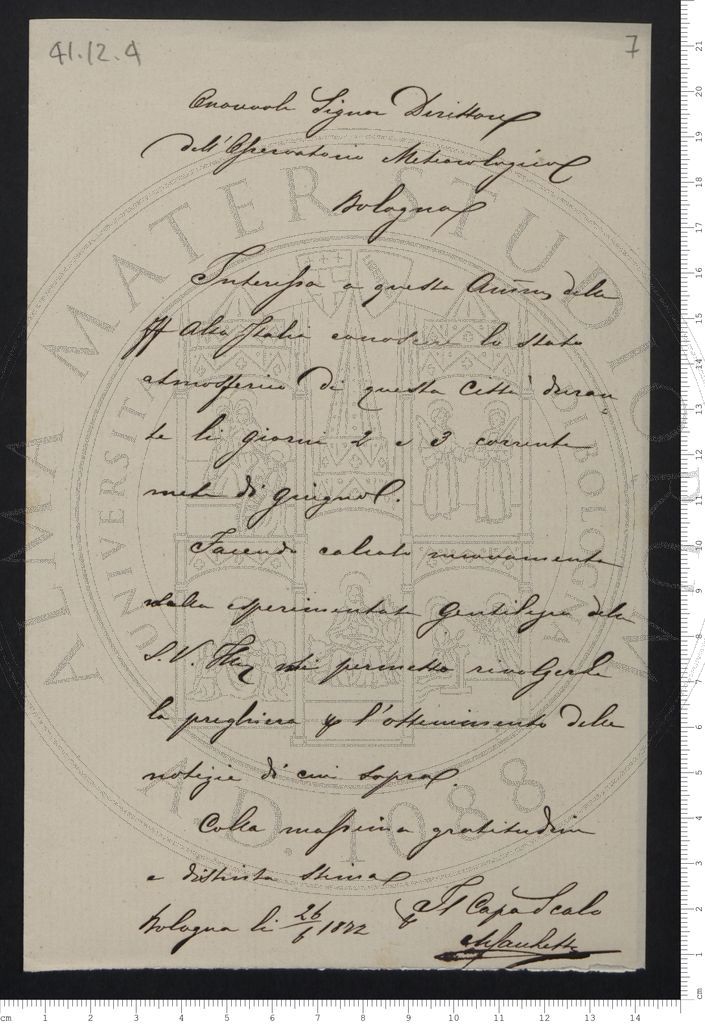 41.12.4
7
Onorevole Signor Direttore
dell'Osservatorio Meteorologico
Bologna
Interessa a questa Ammne delle
ff Alta Italia conoscere lo stato
atmosferico di questa Città duran-
te li giorni 2 e 3 corrente
mese di giugno.
Facendo calcolo nuovamente
sulla esperimentata gentilezza della
S. V. Illma mi permetto rivolgerle
la preghiera p l'ottenimento delle
notizie di cui sopra.
Colla massima gratitudine
e distinta stima
Il Capo Scalo
Bologna li 26/6 1872
ALMA MATER STUDIORUM
UNIVERSITÀ DI BOLOGNA
A.D. 1088
cm 1 2 3 4 5 6 7 8 9 10 11 12 13 14
21
20
19
18
17
16
15
14
13
12
11
10
9
8
7
6
5
4
3
2
1
cm